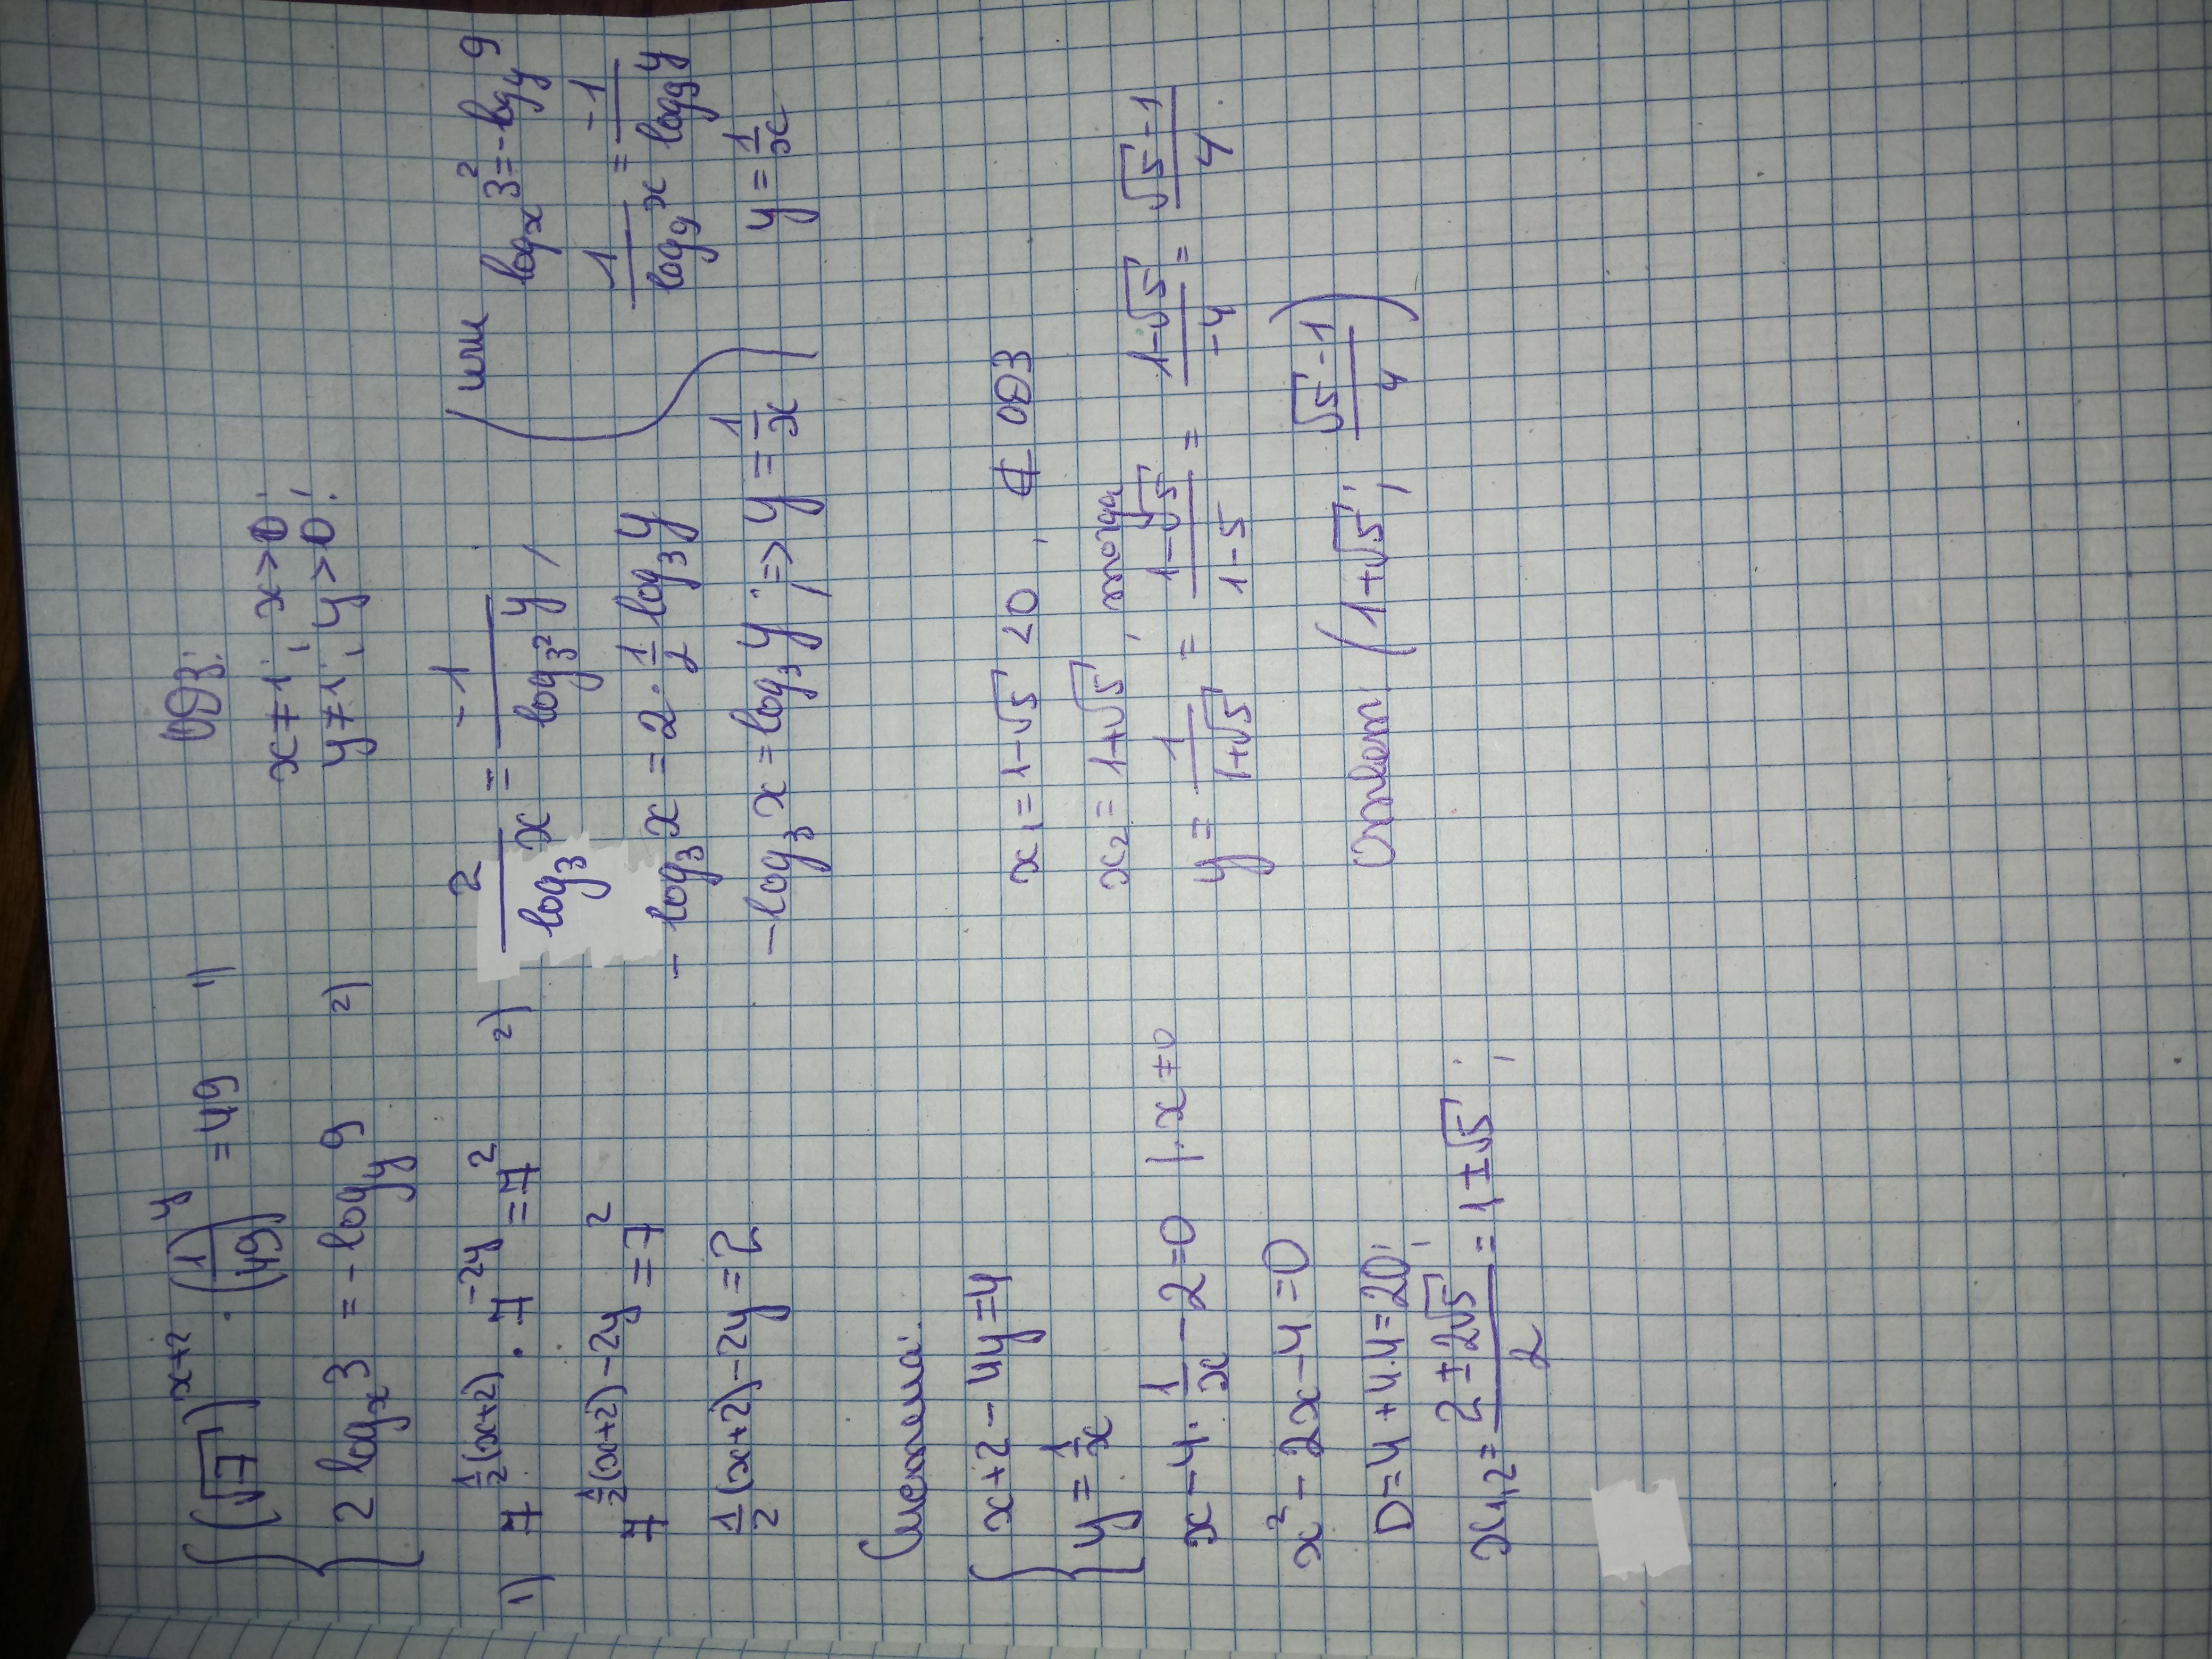 { (√7)^(x+2) · (1/49)^y = 49   1)
{ 2 log_x 3 = - log_y 9   2)
ОДЗ:
x ≠ 1; x > 0;
y ≠ 1; y > 0;
1) 7^(½(x+2)) · 7^(-2y) = 7^2
7^(½(x+2)-2y) = 7^2
1/2 (x+2) - 2y = 2
2) 2/(log_3 x) = -1/(log_(3^2) y);
- log_3 x = 2 · 1/2 log_3 y
- log_3 x = log_3 y; => y = 1/x
(или log_x 3^2 = - log_y 9
1/(log_9 x) = -1/(log_9 y)
y = 1/x )
Система:
{ x+2-4y=4
{ y = 1/x
x - 4 · 1/x - 2 = 0 | · x ≠ 0
x² - 2x - 4 = 0
D = 4 + 4·4 = 20;
x_1,2 = (2 ± 2√5)/2 = 1 ± √5;
x_1 = 1-√5 < 0, ∉ ОДЗ
x_2 = 1+√5, тогда
y = 1/(1+√5) = (1-√5)/(1-5) = (1-√5)/(-4) = (√5-1)/4.
Ответ: (1+√5; (√5-1)/4)